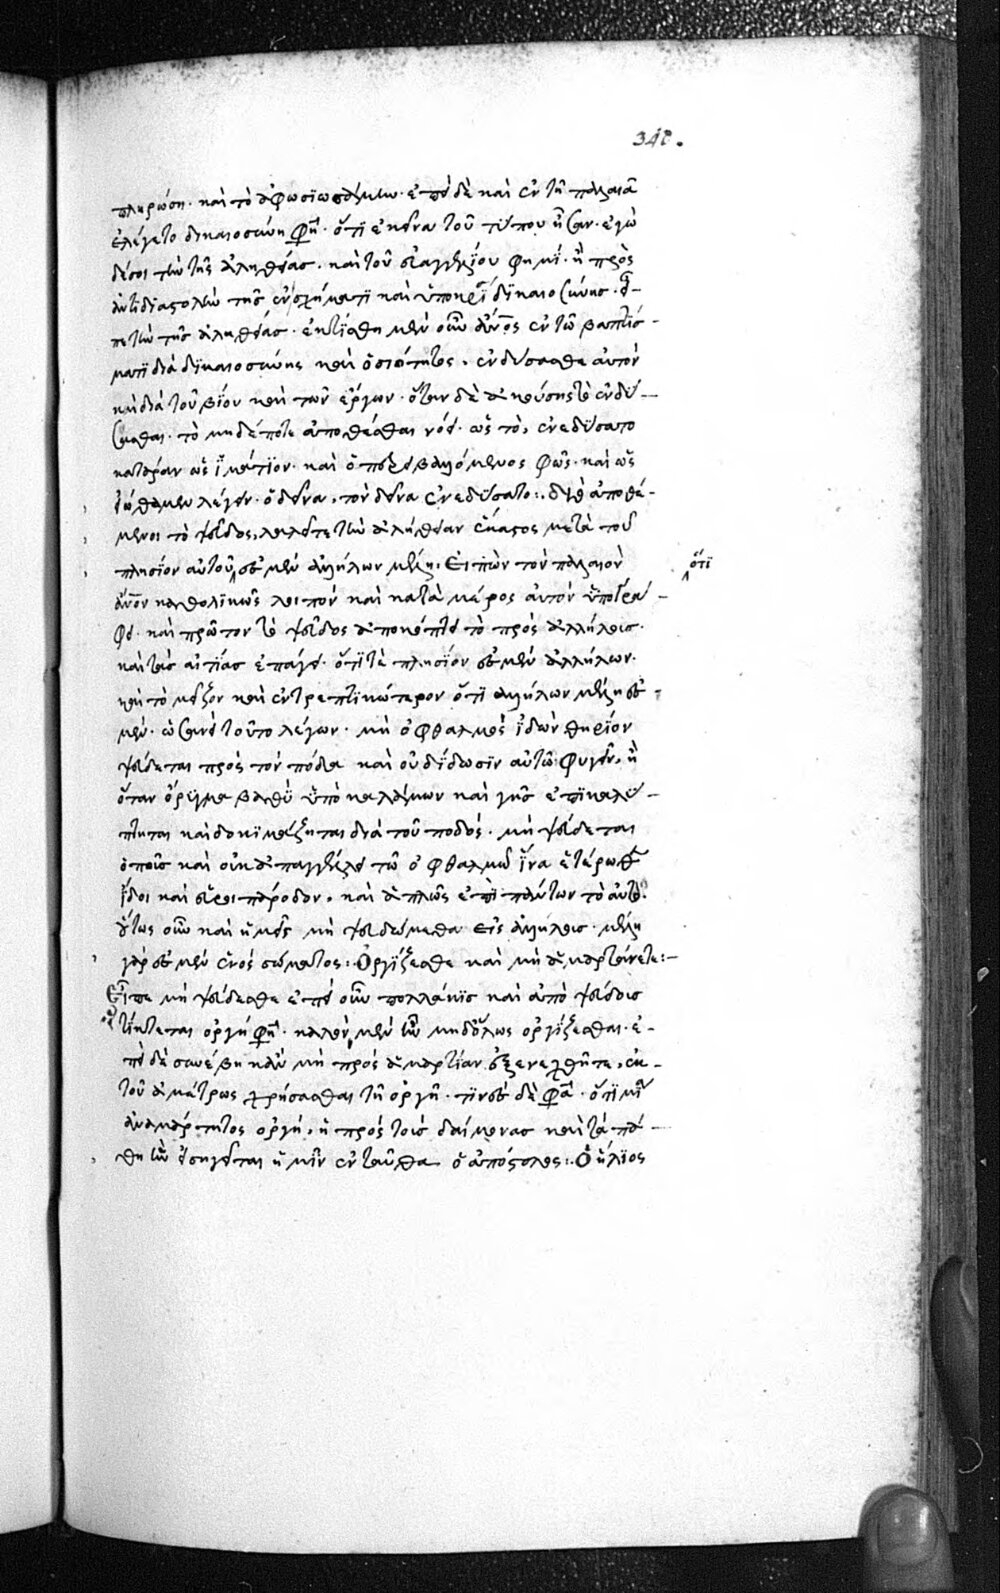 348.
πληρώση. καὶ τὸ ἀφωσϊωμένως. ἐπεὶ δὲ καὶ ἐν τῆ παλαιᾶ
ἐλέγετο δικαιοσύνη φησὶ. ὅτϊ ἐκεῖνα τοῦ τύπου ἦσαν. ἐγὼ
δέσοι τὴν τῆς ἀληθείας. καὶ τοῦ εὐαγγελίου φημί. ἢ πρὸς
ἀντιδιαστολὴν τῆς ἐν σχήματϊ καὶ ὑποκρίσει δϊκαιοσύνης. εἶ-
πε τὴν τῆς ἀληθείας. ἐκτίσθη μὲν οὖν ὁ ἄνος ἐν τῶ βαπτίσ-
ματϊ διὰ δϊκαιοσύνης καὶ ὁσιότητος. ἐνδύσασθε αὐτὸν
καὶ διὰ τοῦ βίου καὶ τῶν ἔργων. ὅταν δὲ ἀκούσης τὸ ἐνδύ-
σασθαι. τὸ μηδέποτε ἀποθέσθαι νόει. ὡς τὸ, ἐνεδύσατο
κατάραν ὡς ἱμάτϊον. καὶ ὁ περιβαλλόμενος φῶς. καὶ ὡς
εἰώθαμεν λέγειν. ὁ δεῖνα, τὸν δεῖνα ἐνεδύσατο:. διὸ ἀποθέ-
μενοι τὸ ψεῦδος, λαλεῖτε τὴν ἀλήθειαν ἕκαστος μετὰ τοῦ
πλησίον αὐτοῦ, ἐσμὲν ἀλλήλων μέλη. Εἰπὼν τὸν παλαιὸν
ὅτϊ
ἄνον καθολϊκῶς λοιπὸν καὶ κατὰ μέρος αὐτὸν ὑπογρά-
φει. καὶ πρῶτον τὸ ψεῦδος ἀποκόπτει τὸ πρὸς ἀλλήλους.
καὶ τὰς αἰτίας ἐπάγει. ὅτϊ τὰ πλησίον ἐσμὲν ἀλλήλων.
καὶ τὸ μεῖζον καὶ ἐντρεπτϊκώτερον ὅτϊ ἀλλήλων μέλη ἐσ-
μέν. ὡσανεὶ τοῦτο λέγων. μὴ ὀφθαλμὸς ἰδὼν θηρίον
ψεύδεται πρὸς τὸν πόδα καὶ οὐ δίδωσϊν αὐτῶ φυγεῖν, ἢ
ὅταν ὄρυγμα βαθὺ ὑπὸ καλάμων καὶ γῆς ἐπϊκαλύ-
πτηται καὶ δοκϊμάζηται διὰ τοῦ ποδός. μὴ ψεύδεται
ὁ ποῦς καὶ οὐκ ἀπαγγέλλει τῶ ὀφθαλμῶ ἵνα ἑτέρωθεν
ἴδοι καὶ εὕροι πάροδον. καὶ ἁπλῶς ἐπὶ πάντων τὸ αὐτό.
οὕτως οὖν καὶ ἡμεῖς μὴ ψευδώμεθα εἰς ἀλλήλους. μέλη
γάρ ἐσμεν ἑνός σώματος:. Ὀργίζεσθε καὶ μὴ ἁμαρτάνετε:-
Εἶπε μὴ ψεύδεσθε ἐπεὶ οὖν πολλάκις καὶ ἀπὸ ψεύδους
τίκτεται ὀργή φησὶ. καλὸν μὲν ἦν μηδόλως ὀργίζεσθαι. ἐ-
πεὶ δὲ συνέβη κἂν μὴ πρός ἁμαρτίαν ἐξενεχθῆτε, ἐκ
τοῦ ἀμέτρως χρήσασθαι τῆ ὀργῆ. τϊνὲς δὲ φασὶ. ὅτϊ μία
ἀναμάρτητος ὀργή, ἡ πρός τοὺς δαίμονας καὶ τὰ πά-
θη ἣν εἰσηγεῖται ἡμῖν ἐνταῦθα ὁ ἀπόστολος:. Ὁ ἥλϊος